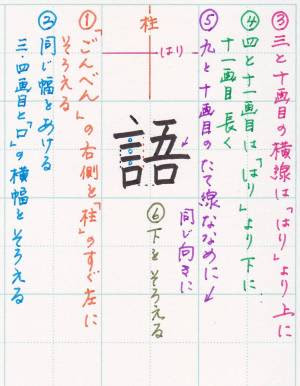 柱
はり
語
①「ごんべん」の右側と「柱」のすぐ左に
そろえる
②同じ幅をあける
三・四画目と「口」の横幅とそろえる
③三と十画目の横線は「はり」より上に
④四と十一画目は「はり」より下に
十一画目長く
⑤九と十画目のたて線ななめに↙
同じ向きに
⑥下をそろえる